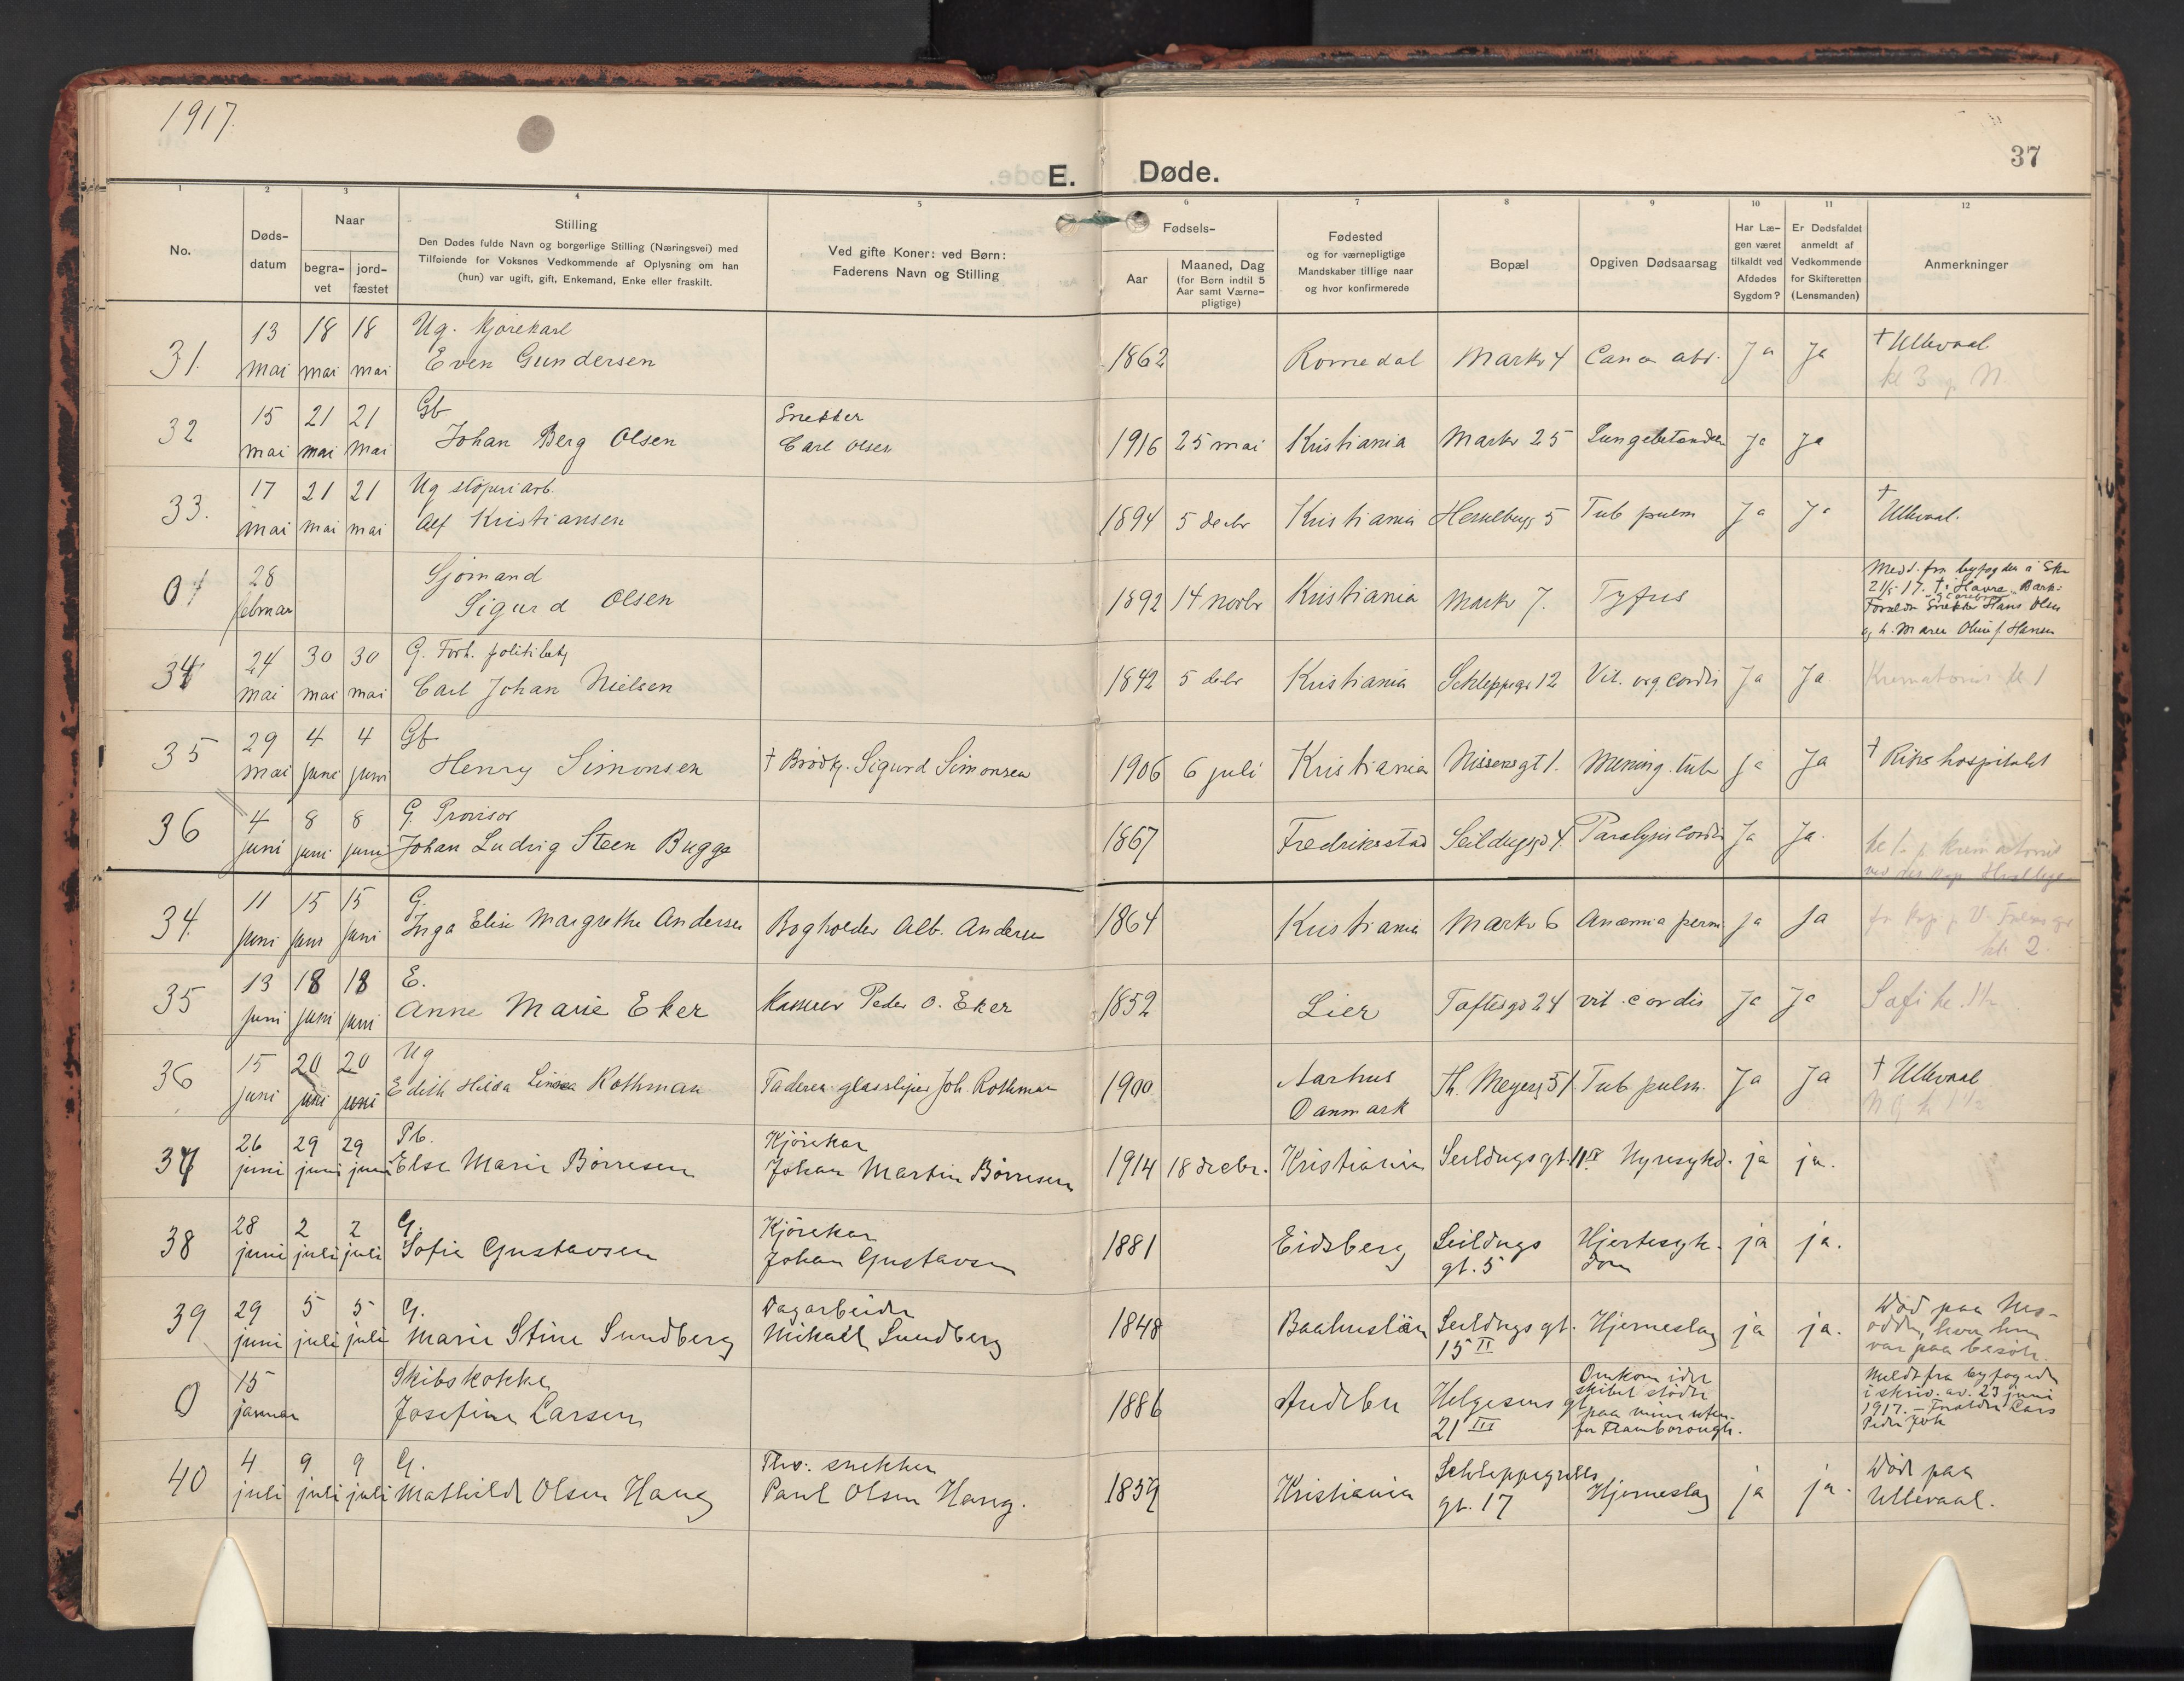 1917.
37
E. Døde.
1 2 3 4 5 6 7 8 9 10 11 12
No.
Døds-
datum
Naar
begra-
vet
jord-
fæstet
Stilling
Den Dødes fulde Navn og borgerlige Stilling (Næringsvei) med
Tilføiende for Voksnes Vedkommende af Oplysning om han
(hun) var ugift, gift, Enkemand, Enke eller fraskilt.
Ved gifte Koner: ved Børn:
Faderens Navn og Stilling
Fødsels-
Aar
Maaned, Dag
(for Børn indtil 5
Aar samt Værne-
pligtige)
Fødested
og for værnepligtige
Mandskaber tillige naar
og hvor konfirmerede
Bopæl
Opgiven Dødsaarsag
Har Læ-
gen været
tilkaldt ved
Afdødes
Sygdom?
Er Dødsfaldet
anmeldt af
Vedkommende
for Skifteretten
(Lensmanden)
Anmerkninger
31. 13 mai 18 mai 18 mai
Ug. Kjørekarl
Even Gundersen
1862 Romedal Markv 4 Canc abd. Ja Ja
† Ullevaal.
kl 3
32 15 mai 21 mai 21 mai
Gb
Johan Berg Olsen
Snekker
Carl Olsen
1916 25 mai Kristiania Markv 25 Lungebetændelse Ja Ja
33. 17 mai 21 mai 21 mai
Ug støperiarb.
Alf Kristiansen
1894 5 decbr Kristiania Hesselbergs 5 Tub pulm Ja Ja
† Ullevaal.
0 28 februar
Sjømand
Sigurd Olsen
1892 14 novbr Kristiania Markv 7. Tyfus
Medd. fra byfogden i Skr
21/5 17. † i Havre Bark:
Forældre Snekker Hans Olsen
og h. Maren Oline f. Hansen
34 24 mai 30 mai 30 mai
G. Forh. politibetj
Carl Johan Nielsen
1842 5 decbr Kristiania Schleppegr 12 Vit. org. cordis Ja Ja
Krematoriet kl 1
35 29 mai 4 juni 4 juni
Gb
Henry Simonsen
† Brødkj. Sigurd Simonsen
1906 6 juli Kristiania Nissens gt 1. Mening. tub Ja Ja
† Rikshospitalet
36 4 juni 8 juni 8 juni
G. Provisor
Johan Ludvig Steen Bugge
1867 Fredriksstad Seildugsgd 4. Paralysis cordis Ja Ja.
kl 1. Krematoriet
34. 11 juni 15 juni 15 juni
G.
Inga Elise Margrethe Andersen
Bogholder Alb. Andersen
1864 Kristiania Markv 6 Anæmia perni Ja Ja
kl. 2.
35 13 juni 18 juni 18 juni
E.
Anne Marie Eker
Peder O. Eker
1852 Lier Toftesgd 24 vit. cordis Ja Ja
36 15 juni 20 juni 20 juni
Ug
Edith Hilda Linnea Rothman
Faderen glassliper Joh. Rothman
1900 Aarhus
Danmark
Th. Meyersg 51 Tub pulm. Ja Ja
† Ullevaal
37 26 juni 29 juni 29 juni
Pb.
Else Marie Børresen
Kjørekar
Johan Martin Børresen
1914 18 decbr. Kristiania Seildugsgt. 11 IV Nyresykd. ja ja.
38 28 juni 2 juli 2 juli
G.
Sofie Gustavsen
Kjørekar
Johan Gustavsen
1881 Eidsberg Seildugs
gt. 5
Hjertesyk-
dom
ja ja.
39 29 juni 5 juli 5 juli
G.
Marie Stine Sundberg
Dagarbeider
Mikaël Sundberg
1848 Baahuslän Seildugsgt.
15 II
Hjerneslag ja ja.
Død paa Nes-
odden, hvor hun
var paa besøk.
0 15 januar
Skibskokke
Josefine Larsen
1886 Andebu Helgesens gt
21 III
Omkom idet
skibet stødte
paa mine uten-
for Flamborough.
Meldt fra byfogden
i skriv. av 23 juni
1917. – Forældre Lars
Peder
40 4 juli 9 juli 9 juli
G.
Mathilde Olsen Haug
Fhv. snekker
Paul Olsen Haug.
1859 Kristiania Schleppegrells
gt. 17
Hjerneslag ja ja.
Død paa
Ullevaal.